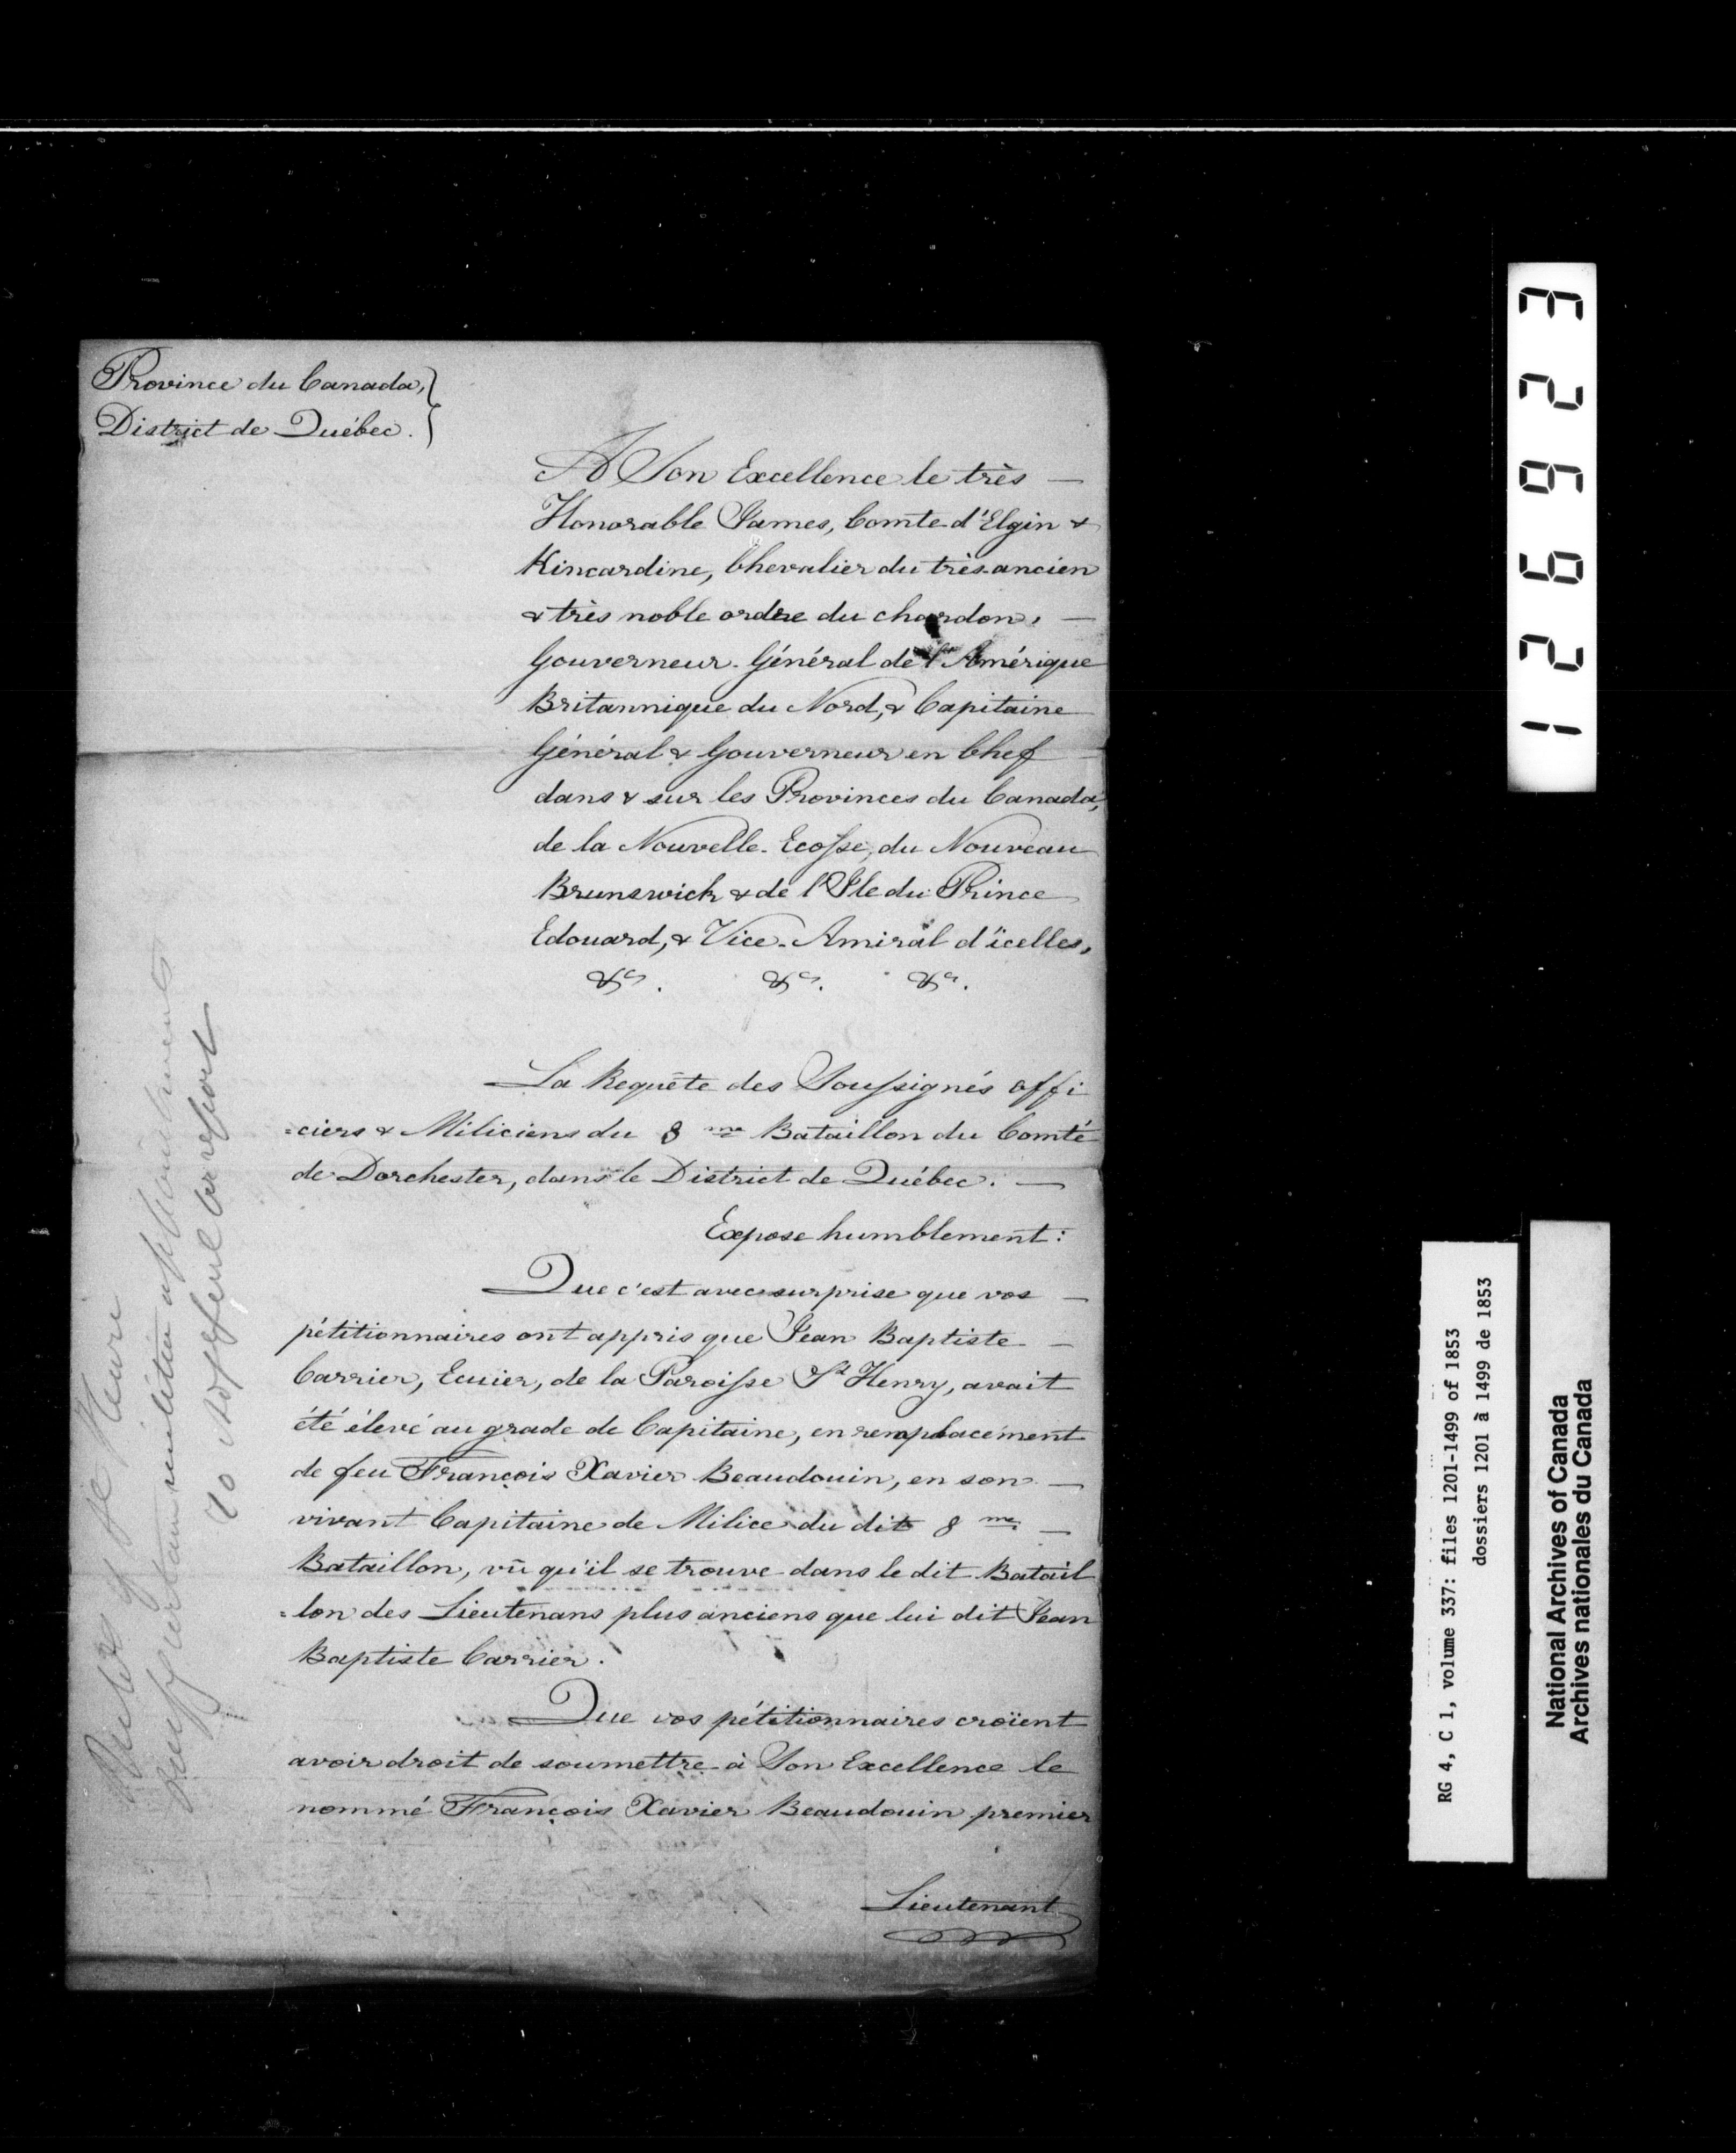 Province du Canada,
District de Québec.
A Son Excellence le très —
Honorable James, Comte d'Elgin &
Kincardine, Chevalier du très-ancien
& très noble ordre du chardon, —
Gouverneur-Général de l'Amérique
Britannique du Nord, & Capitaine
Général & Gouverneur en Chef —
dans & sur les Provinces du Canada,
de la Nouvelle-Ecosse, du Nouveau
Brunswick & de l'Ile du Prince
Edouard, & Vice-Amiral d'icelles,
&ca. &ca. &ca.
La Requête des Soussignés offi
=ciers & Miliciens du 8 me Bataillon du Comté
de Dorchester, dans le District de Québec. —
Expose humblement:
Que c'est avec surprise que vos —
pétitionnaires ont appris que Jean Baptiste —
Carrier, Ecuier, de la Paroisse St Henry, avait
été élevé au grade de Capitaine, en remplacement
de feu François Xavier Beaudouin, en son —
vivant Capitaine de Milice du dit 8 me. —
Bataillon, vû qu'il se trouve dans le dit Batail
=lon des Lieutenans plus anciens que lui dit Jean
Baptiste Carrier.
Que vos pétitionnaires croïent
avoir droit de soumettre à Son Excellence le
nommé François Xavier Beaudouin premier
Lieutenant
of St Henri
certain militia appointments
126923
RG 4, C 1, volume 337: files 1201-1499 of 1853
dossiers 1201 à 1499 de 1853
National Archives of Canada
Archives nationales du Canada